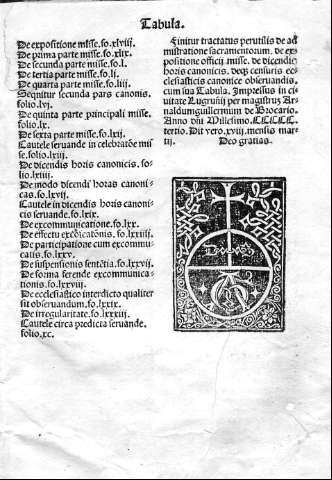 Tabula.
De expositione misse. fo. xlviij.
De prima parte misse. fo. xlix.
De secunda parte misse. fo. l.
De tertia parte misse. fo. lj.
De quarta parte misse. fo. liij.
Sequitur secunda pars canonis.
folio. lvj.
De quinta parte principali misse.
folio. lx.
De sexta parte misse. fo. lxij.
Cautele servande in celebratõe mis
se. folio. lxij.
De dicendis horis canonicis. fo-
lio. lxiiij.
De modo dicendi horas canoni-
cas. fo. lxvij.
Cautele in dicendis horis canoni-
cis servande. fo. lxix.
De excommunicatione. fo. lxx.
De effectu excõicatonis. fo. lxxiiij.
De participatione cum excommu-
catis. fo. lxxv.
De suspensionis sentẽtia. fo. lxxvij.
De forma ferende excommunica-
tionis. fo. lxxviij.
De ecclesiastico interdicto qualiter
sit observandum. fo. lxxix.
De irregularitate. fo. lxxxiij.
Cautele circa predicta servande.
folio. xc.
Finitur tractatus perutilis de ad
ministratione sacramentorum. de ex-
positione officij. misse. de dicendis
horis canonicis. deqz censuris ec-
clesiasticis canonice observandis.
cum sua Tabula. Impressus in ci-
vitate Lugrunij per magistrum Ar-
naldumguillermum de Brocario.
Anno dñi Millesimo. CCCCC.
tertio. Die vero. xviij. mensis mar-
tij. Deo gratias.